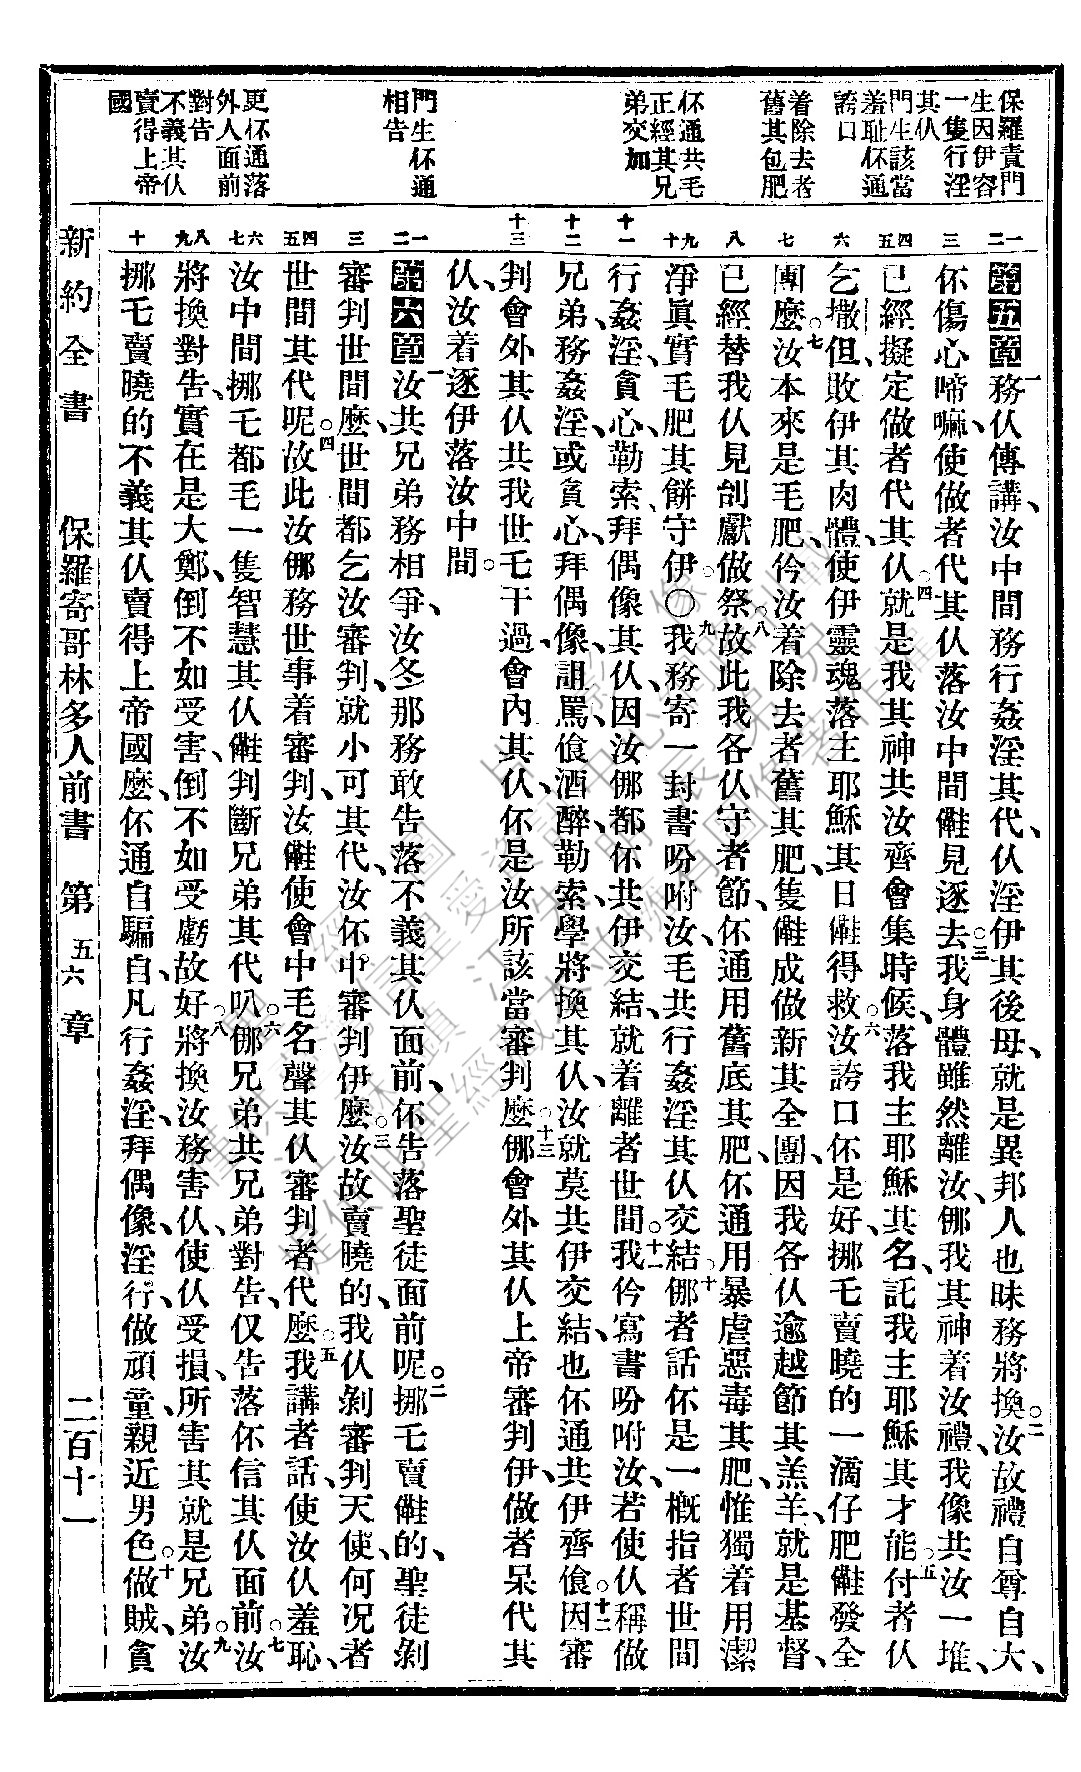 保羅責門
生因伊容
一隻行淫
其仈
門生該當
羞耻伓通
誇口
着除去者
舊其包肥
伓通共乇
正經其兄
弟交加
門生伓通
相告
更伓通落
外人面前
對告
不義其仈
賣得上帝
國
一二 三 四五 六 七 八 九十 十一 十二 十三 一二 三 四五 六七 八九 十
第五章一務仈傳講、汝中間務行姦淫其代、仈淫伊其後母、就是異邦人也昧務將換、○二汝故禮自尊自大、
伓傷心啼嘛、使做者代其仈落汝中間㑚見逐去、○三我身體雖然離汝、㑚我其神着汝禮、我像共汝一堆、
已經擬定做者代其仈、○四就是我其神共汝齊會集時候、落我主耶穌其名、託我主耶穌其才能、○五付者仈
乞撒但、敗伊其肉體、使伊靈魂落主耶穌其日㑚得救、○六汝誇口伓是好、挪乇賣曉的一滴仔肥㑚發全
團麽、○七汝本來是毛肥、仱汝着除去者舊其肥、隻㑚成做新其全團、因我各仈逾越節其羔羊、就是基督、
已經替我仈見刣獻做祭、○八故此我各仈守者節、伓通用舊底其肥、伓通用暴虐惡毒其肥、惟獨着用潔
淨眞實毛肥其餅守伊、○○九我務寄一封書吩咐汝、毛共行姦淫其仈交結、○十㑚者話伓是一概指者世間
行姦淫、貪心、勒索、拜偶像其仈、因汝㑚都伓共伊交結、就着離者世間、○十一我仱寫書吩咐汝、若使仈稱做
兄弟、務姦淫、或貪心、拜偶像、詛罵、飡酒醉、勒索、學將換其仈、汝就莫共伊交結、也伓通共伊齊飡、○十二因審
判會外其仈共我世乇干過、會內其仈、伓是汝所該當審判麽、○十三㑚會外其仈上帝審判伊、做者呆代其
仈、汝着逐伊落汝中間。
第六章一汝共兄弟務相爭、汝冬那務敢告落不義其仈面前、伓告落聖徒面前呢、○二挪乇賣㑚的、聖徒剝
審判世間麽、世間都乞汝審判、就小可其代、汝伓中審判伊麽、○三汝故賣曉的、我仈剝審判天使、何況者
世間其代呢、○四故此汝㑚務世事着審判、汝㑚使會中毛名聲其仈審判者代麽、○五我講者話、使汝仈羞恥、
汝中間、挪乇都毛一隻智慧其仈㑚判斷兄弟其代叭、○六㑚兄弟共兄弟對告、仅告落伓信其仈面前、○七汝
將換對告、實在是大鄭、倒不如受害、倒不如受虧、○八故好將換汝務害仈、使仈受損、所害其就是兄弟、○九汝
挪乇賣曉的不義其仈賣得上帝國麽、伓通自騙自、凡行姦淫、拜偶像、淫行、做頑童、親近男色、○十做賊、貪
新約全書　保羅寄哥林多人前書　第五六章　二百十一